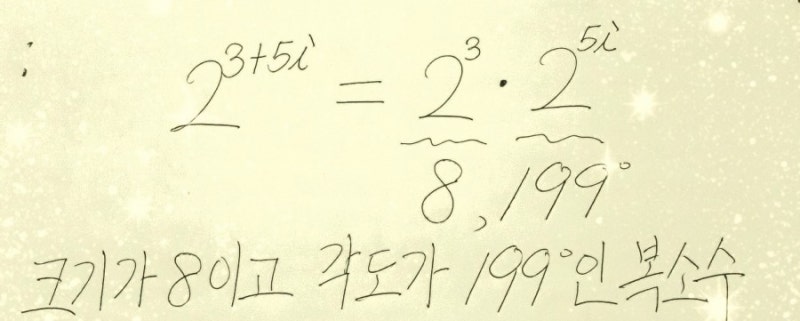 2^{3+5i} = 2^3 · 2^{5i}
8, 199°
크기가 8이고 각도가 199°인 복소수